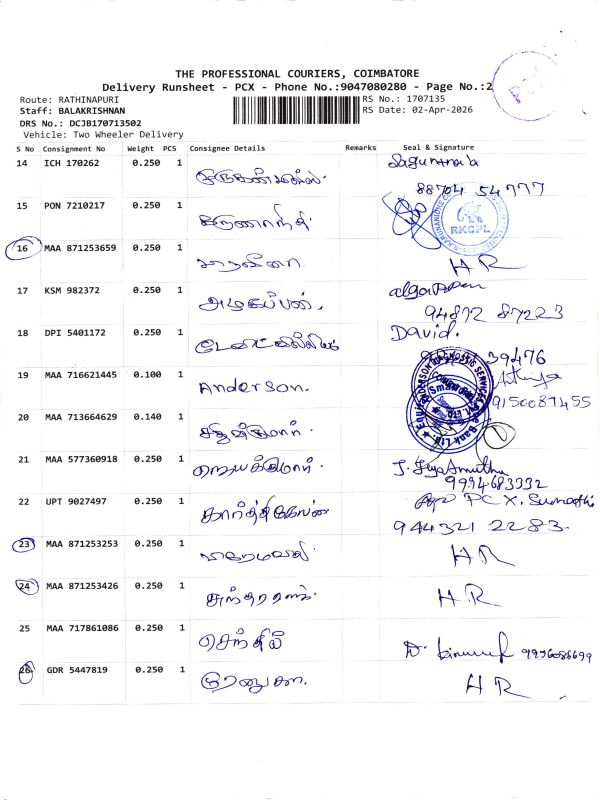 THE PROFESSIONAL COURIERS, COIMBATORE
Delivery Runsheet - PCX - Phone No.:9047080280 - Page No.:2
Route: RATHINAPURI
RS No.: 1707135
Staff: BALAKRISHNAN
RS Date: 02-Apr-2026
DRS No.: DCJB170713502
Vehicle: Two Wheeler Delivery
S No Consignment No Weight PCS Consignee Details Remarks Seal & Signature
14 ICH 170262 0.250 1
88704 54777
15 PON 7210217 0.250 1 கருணாநிதி RKCPL
16 MAA 871253659 0.250 1 HR
17 KSM 982372 0.250 1 அழகப்பன். algappan
94872 87223
18 DPI 5401172 0.250 1 David.
39476
19 MAA 716621445 0.100 1 Anderson.
9150087455
20 MAA 713664629 0.140 1
21 MAA 577360918 0.250 1 ஜெயக்குமார். J. JeyaAmutha
9994683332
22 UPT 9027497 0.250 1 கார்த்திகேயன் PCX. Sumathi
944321 2283.
23 MAA 871253253 0.250 1 ஹேமலதா. HR
24 MAA 871253426 0.250 1 சுந்தரராஜ். HR
25 MAA 717861086 0.250 1 செந்தில் 9996086699
26 GDR 5447819 0.250 1 ரேணுகா. HR